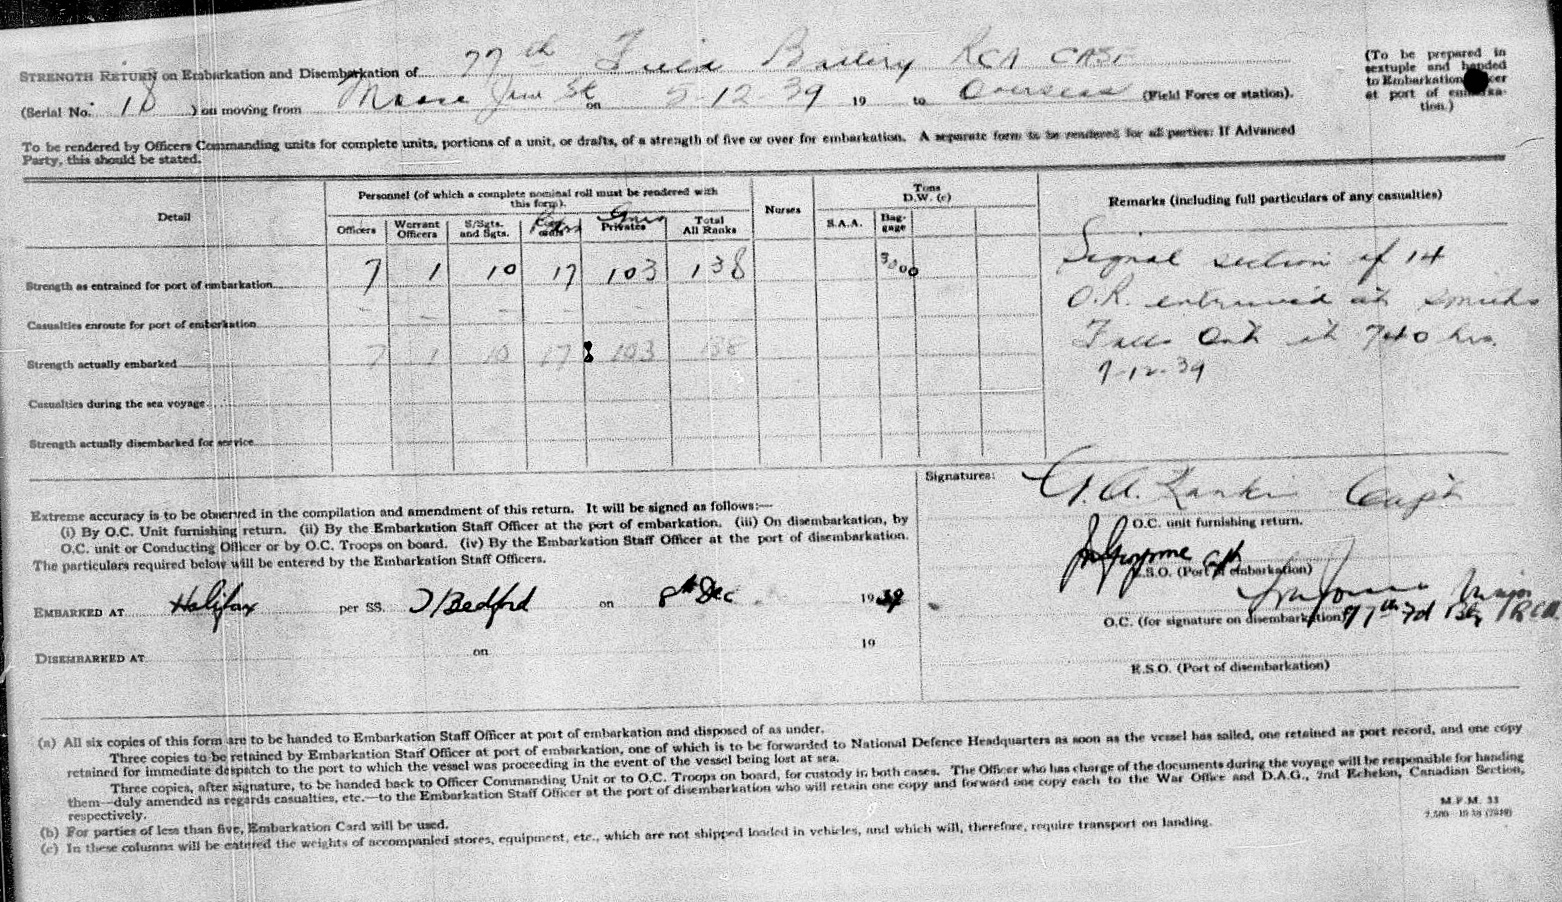 STRENGTH RETURN on Embarkation and Disembarkation of 77th Field Battery RCA CASF
(Serial No. 18 ) on moving from Moose Jaw Sk on 5 12 39 19 to Overseas (Field Force or station).
(To be prepared in
sextuple and handed
to Embarkation
at port of
tion.)
To be rendered by Officers Commanding units for complete units, portions of a unit, or drafts, of a strength of five or over for embarkation. A separate form to be rendered for all parties: If Advanced
Party, this should be stated.
Detail
Personnel (of which a complete nominal roll must be rendered with
this form).
Officers Warrant Officers S/Sgts. and Sgts. Gnrs Privates Total All Ranks
Nurses
Tons
D.W. (c)
S.A.A. Bag-gage
Remarks (including full particulars of any casualties)
Strength as entrained for port of embarkation 7 1 10 17 103 138 3000
Casualties enroute for port of embarkation – – – – –
Strength actually embarked 7 1 10 17 103 138
Casualties during the sea voyage
Strength actually disembarked for service
Signal section of 14
O.R. entrained at Smiths
Falls Ont at 740 hrs.
7-12-39
Extreme accuracy is to be observed in the compilation and amendment of this return. It will be signed as follows:—
(i) By O.C. Unit furnishing return. (ii) By the Embarkation Staff Officer at the port of embarkation. (iii) On disembarkation, by
O.C. unit or Conducting Officer or by O.C. Troops on board. (iv) By the Embarkation Staff Officer at the port of disembarkation.
The particulars required below will be entered by the Embarkation Staff Officers.
EMBARKED AT Halifax per SS. D Bedford on 8th Dec 1939
DISEMBARKED AT on 19
Signatures:
G.A. Rankin Capt
O.C. unit furnishing return.
Capt
E.S.O. (Port of embarkation)
Major
O.C. (for signature on disembarkation) 77th Fd Bty RCA
E.S.O. (Port of disembarkation)
(a) All six copies of this form are to be handed to Embarkation Staff Officer at port of embarkation and disposed of as under.
Three copies to be retained by Embarkation Staff Officer at port of embarkation, one of which is to be forwarded to National Defence Headquarters as soon as the vessel has sailed, one retained as port record, and one copy
retained for immediate despatch to the port to which the vessel was proceeding in the event of the vessel being lost at sea.
Three copies, after signature, to be handed back to Officer Commanding Unit or to O.C. Troops on board, for custody in both cases. The Officer who has charge of the documents during the voyage will be responsible for handing
them—duly amended as regards casualties, etc.—to the Embarkation Staff Officer at the port of disembarkation who will retain one copy and forward one copy each to the War Office and D.A.G., 2nd Echelon, Canadian Section,
respectively.
(b) For parties of less than five, Embarkation Card will be used.
(c) In these columns will be entered the weights of accompanied stores, equipment, etc., which are not shipped loaded in vehicles, and which will, therefore, require transport on landing.
M.F.M. 33